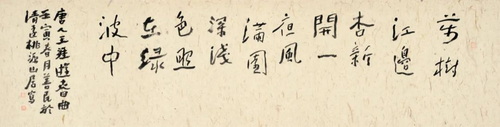 萬樹
江邊
杏新
開一
夜風
滿園
深淺
色照
在緑
波中
唐人王涯遊春曲
壬寅春月善民於
清遠桃源山居寫